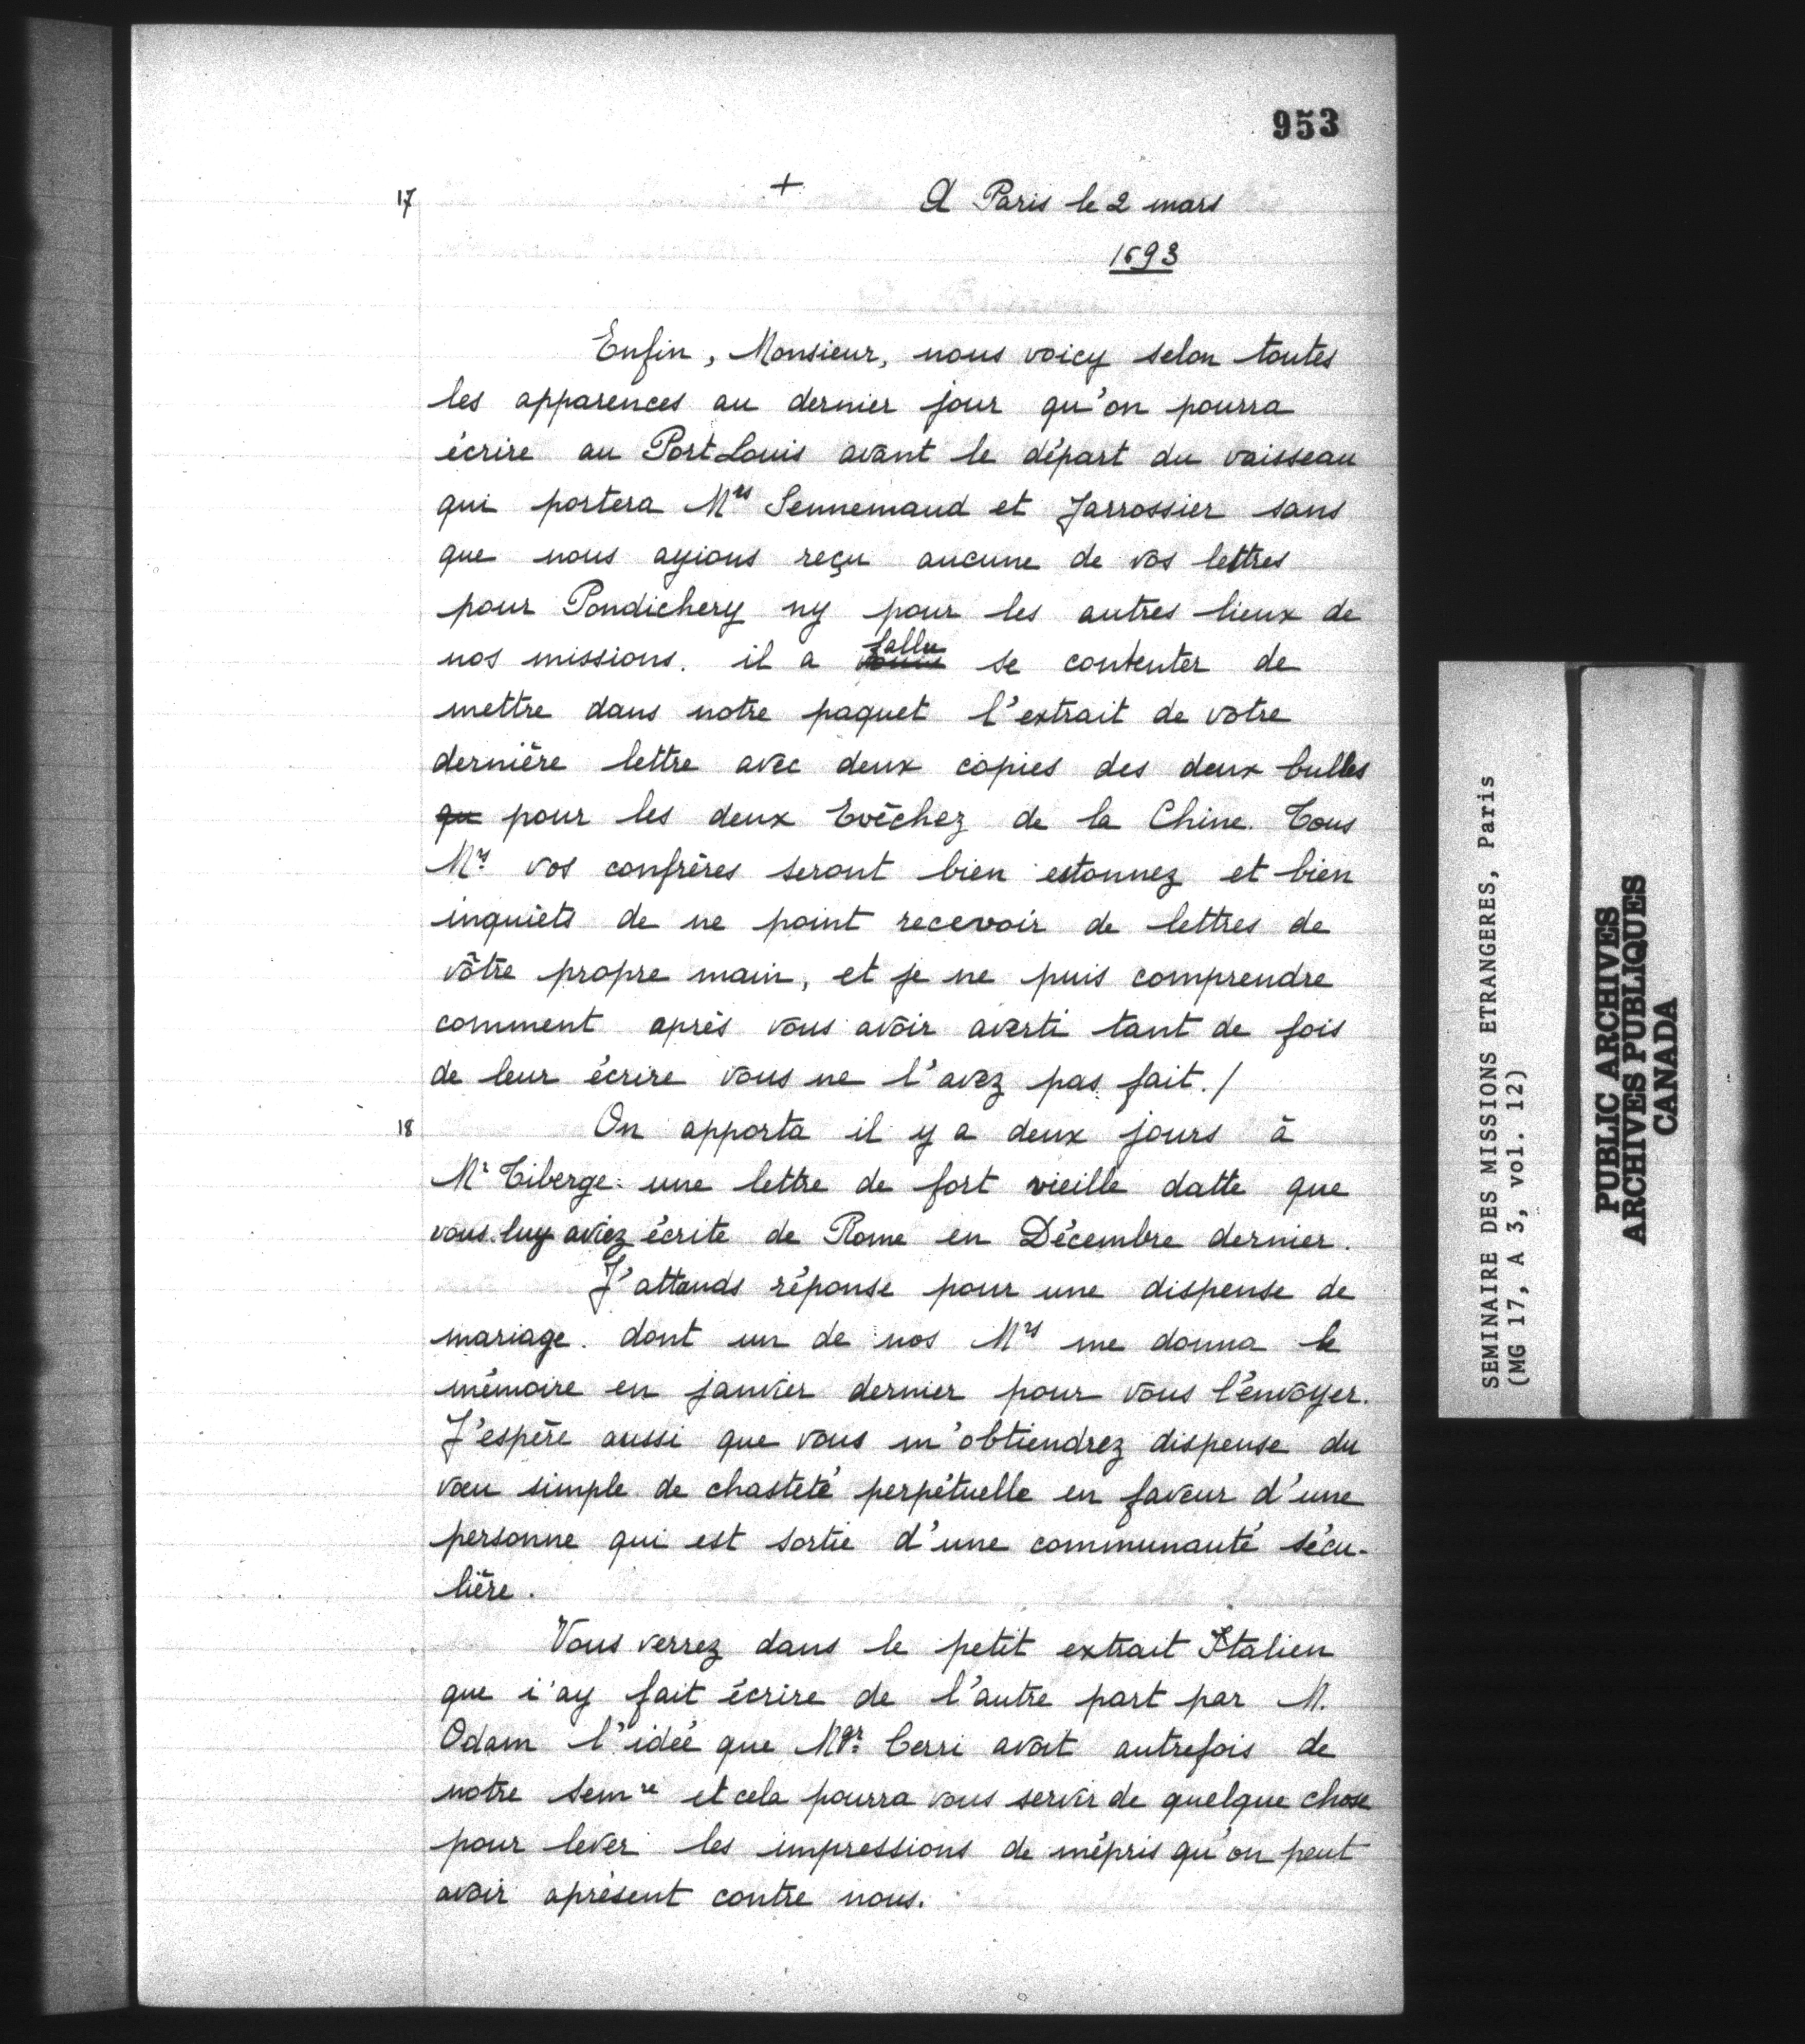 953
17 + A Paris le 2 mars
1693
Enfin, Monsieur, nous voicy selon toutes
les apparences au dernier jour qu'on pourra
écrire au Port Louis avant le départ du vaisseau
qui portera Mrs Sennemaud et Jarrossier sans
que nous ayions reçu aucune de vos lettres
pour Pondichery ny pour les autres lieux de
nos missions. il a fallu se contenter de
mettre dans notre paquet l'extrait de votre
dernière lettre avec deux copies des deux bulles
qu pour les deux Evêchez de la Chine. Tous
Mrs vos confrères seront bien estonnez et bien
inquiets de ne point recevoir de lettres de
vôtre propre main, et je ne puis comprendre
comment après vous avoir averti tant de fois
de leur écrire vous ne l'avez pas fait./
18 On apporta il y a deux jours à
Mr Tiberge une lettre de fort vieille datte que
vous luy aviez écrite de Rome en Décembre dernier.
J'attends réponse pour une dispense de
mariage. dont un de nos Mrs me donna le
mémoire en janvier dernier pour vous l'envoyer.
J'espère aussi que vous m'obtiendrez dispense du
vœu simple de chasteté perpétuelle en faveur d'une
personne qui est sortie d'une communauté sécu-
lière.
Vous verrez dans le petit extrait Italien
que i'ay fait écrire de l'autre part par M.
Odam l'idée que Mgr. Cerri avoit autrefois de
notre semre et cela pourra vous servir de quelque chose
pour lever les impressions de mépris qu'on peut
avoir aprésent contre nous.
SEMINAIRE DES MISSIONS ETRANGERES, Paris
(MG 17, A 3, vol. 12)
PUBLIC ARCHIVES
ARCHIVES PUBLIQUES
CANADA